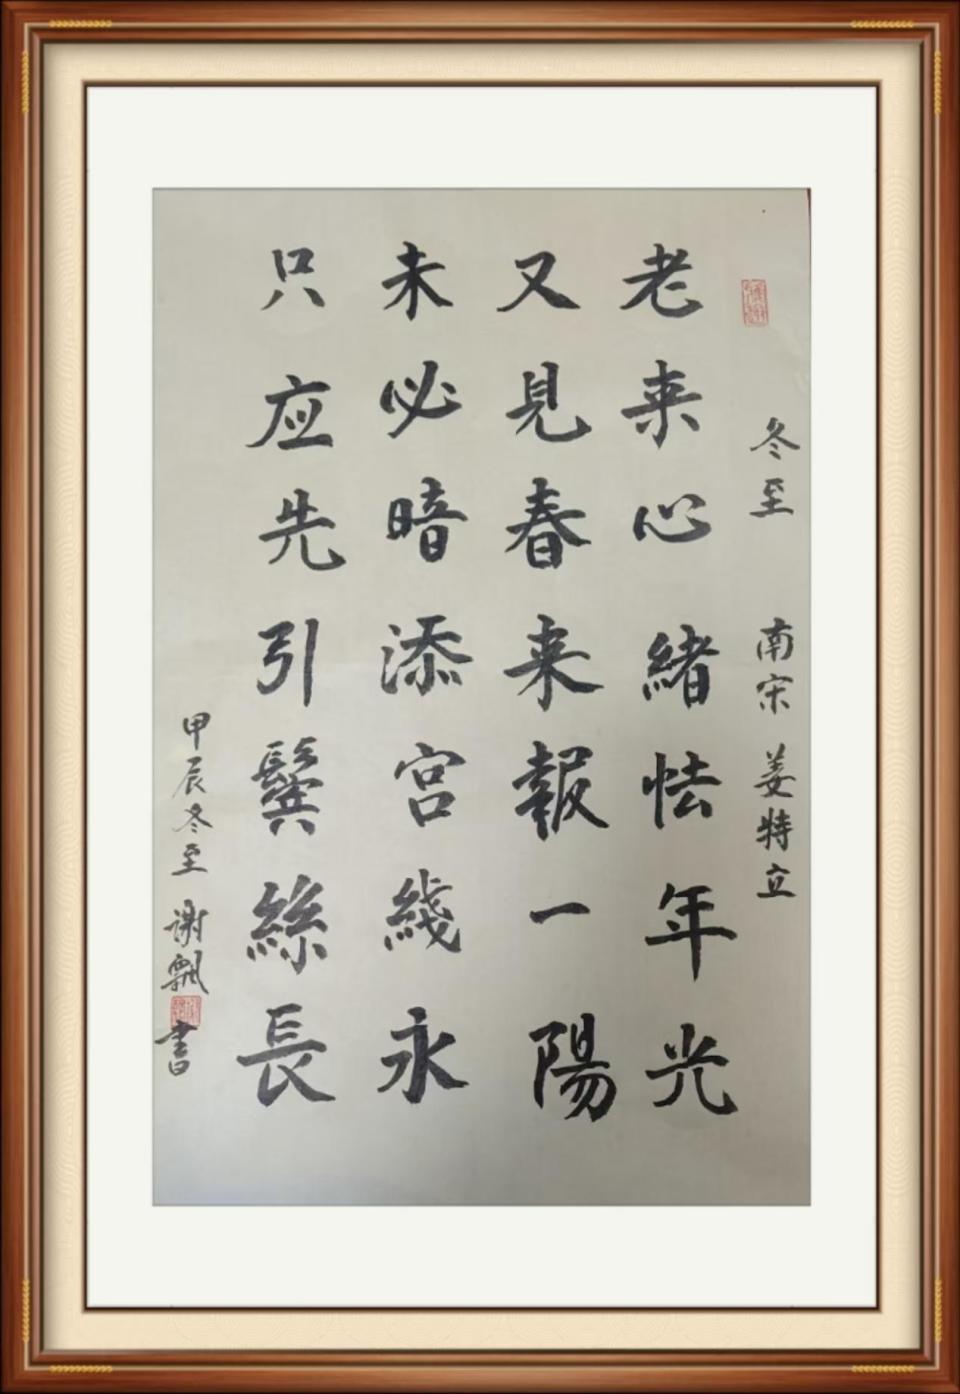 冬至 南宋 姜特立
老来心緒怯年光
又見春来報一陽
未必暗添宫綫永
只应先引鬓絲長
甲辰冬至 谢飘書